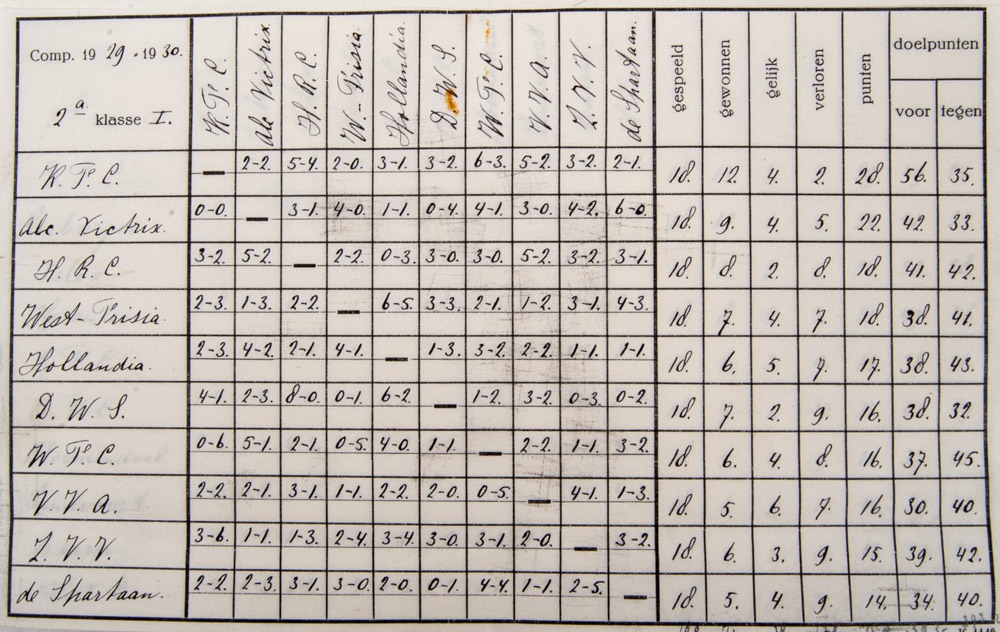 Comp. 1929-1930.
2a. klasse I.
K. F. C. Alc. Victrix. H. R. C. W.-Frisia. Hollandia. D. W. S. W. F. C. V. V. A. Z. V. V. de Spartaan. gespeeld gewonnen gelijk verloren punten doelpunten
voor tegen
K. F. C. — 2-2. 5-4. 2-0. 3-1. 3-2. 6-3. 5-2. 3-2. 2-1. 18. 12. 4. 2. 28. 56. 35.
Alc. Victrix. 0-0. — 3-1. 4-0. 1-1. 0-4. 4-1. 3-0. 4-2. 6-0. 18. 9. 4. 5. 22. 42. 33.
H. R. C. 3-2. 5-2. — 2-2. 0-3. 3-0. 3-0. 5-2. 3-2. 3-1. 18. 8. 2. 8. 18. 41. 42.
West-Frisia. 2-3. 1-3. 2-2. — 6-5. 3-3. 2-1. 1-2. 3-1. 4-3. 18. 7. 4. 7. 18. 38. 41.
Hollandia. 2-3. 4-2. 2-1. 4-1. — 1-3. 3-2. 2-2. 1-1. 1-1. 18. 6. 5. 7. 17. 38. 43.
D. W. S. 4-1. 2-3. 8-0. 0-1. 6-2. — 1-2. 3-2. 0-3. 0-2. 18. 7. 2. 9. 16. 38. 32.
W. F. C. 0-6. 5-1. 2-1. 0-5. 4-0. 1-1. — 2-2. 1-1. 3-2. 18. 6. 4. 8. 16. 37. 45.
V. V. A. 2-2. 2-1. 3-1. 1-1. 2-2. 2-0. 0-5. — 4-1. 1-3. 18. 5. 6. 7. 16. 30. 40.
Z. V. V. 3-6. 1-1. 1-3. 2-4. 3-4. 3-0. 3-1. 2-0. — 3-2. 18. 6. 3. 9. 15. 39. 42.
de Spartaan. 2-2. 2-3. 3-1. 3-0. 2-0. 0-1. 4-4. 1-1. 2-5. — 18. 5. 4. 9. 14. 34. 40.